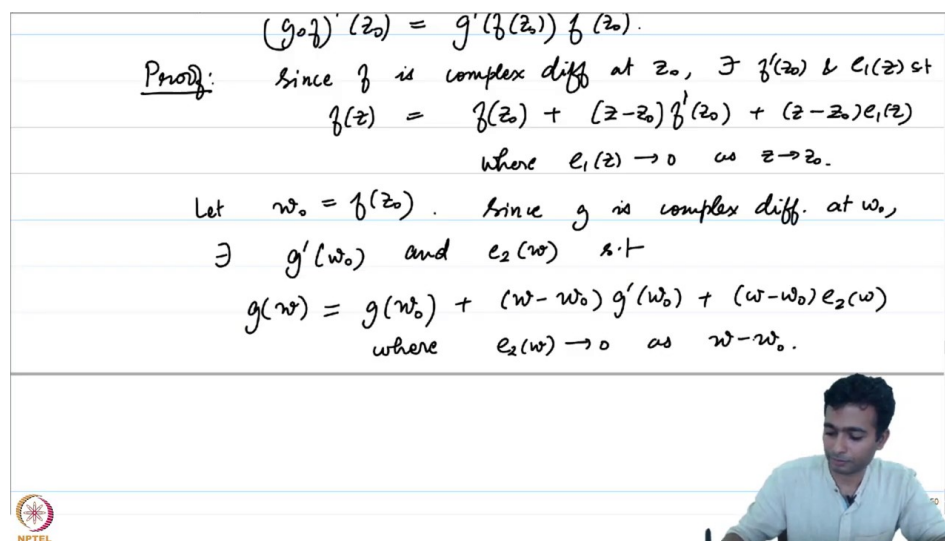 (g∘f)'(z₀) = g'(f(z₀)) f'(z₀).
Proof: Since f is complex diff at z₀, ∃ f'(z₀) & e₁(z) st
f(z) = f(z₀) + (z-z₀) f'(z₀) + (z-z₀)e₁(z)
where e₁(z) → 0 as z→z₀.
Let w₀ = f(z₀). Since g is complex diff. at w₀,
∃ g'(w₀) and e₂(w) s.t
g(w) = g(w₀) + (w-w₀) g'(w₀) + (w-w₀)e₂(w)
where e₂(w) → 0 as w-w₀.
NPTEL